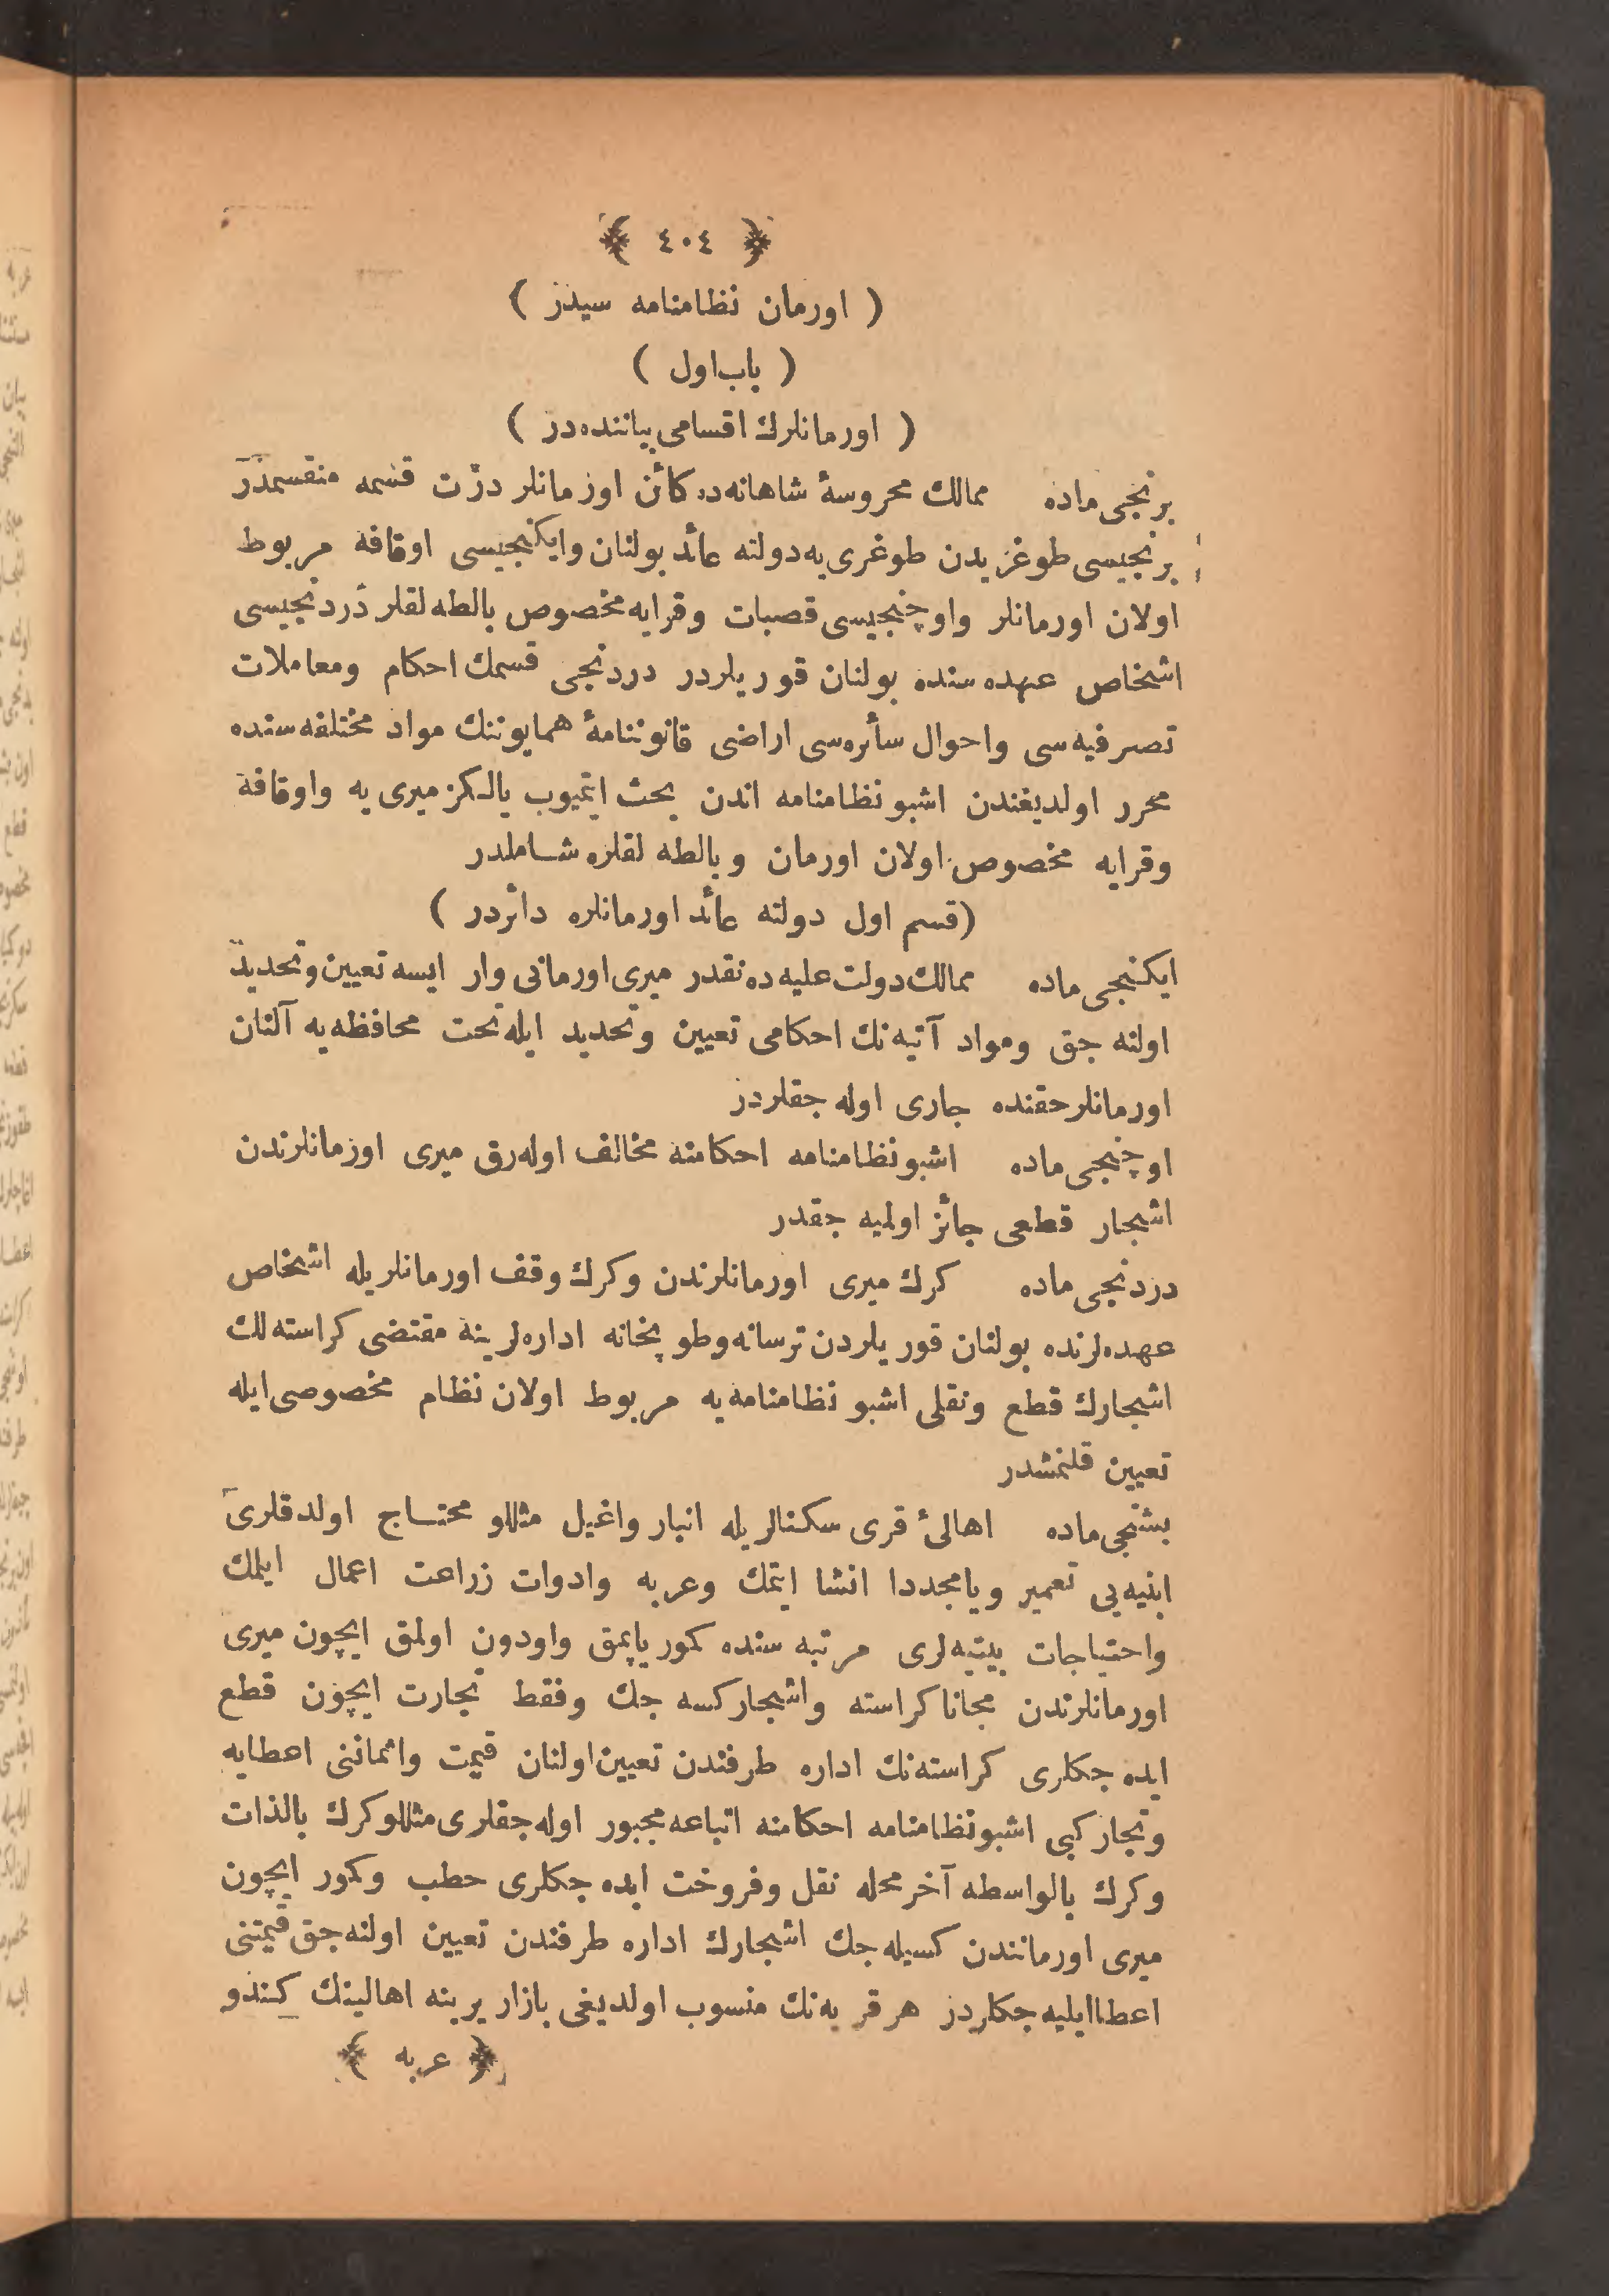 ﴿ ٤٠٤ ﴾
( اورمان نظامنامه سیدر )
( باب اول )
( اورمانلرك اقسامی بیاننده در )
برنجی ماده ممالك محروسهٔ شاهانه ده كائن اورمانلر درت قسمه منقسمدر
برنجیسی طوغریدن طوغری یه دولته عائد بولنان وایكنجیسی اوقافه مربوط
اولان اورمانلر واوچنجیسی قصبات وقرایه مخصوص بالطه لقلر دردنجیسی
اشخاص عهده سنده بولنان قوریلردر دردنجی قسمك احكام ومعاملات
تصرفیه سی واحوال سائره سی اراضی قانوننامهٔ همایوننك مواد مختلفه سنده
محرر اولدیغندن اشبو نظامنامه اندن بحث ایتمیوب یالكز میری یه واوقافه
وقرایه مخصوص اولان اورمان وبالطه لقلره شاملدر
(قسم اول دولته عائد اورمانلره دائردر )
ایكنجی ماده ممالك دولت علیه ده نقدر میری اورمانی وار ایسه تعیین وتحدید
اولنه جق ومواد آتیه نك احكامی تعیین وتحدید ایله تحت محافظه یه آلنان
اورمانلر حقنده جاری اوله جقلردر
اوچنجی ماده اشبو نظامنامه احكامنه مخالف اوله رق میری اورمانلرندن
اشجار قطعی جائز اولمیه جقدر
دردنجی ماده كرك میری اورمانلرندن وكرك وقف اورمانلریله اشخاص
عهده لرنده بولنان قوریلردن ترسانه وطوپخانه اداره لرینه مقتضی كراسته لك
اشجارك قطع ونقلی اشبو نظامنامه یه مربوط اولان نظام مخصوصی ایله
تعیین قلنمشدر
بشنجی ماده اهالئ قری سكنالریله انبار واغیل مثللو محتاج اولدقلری
ابنیه یی تعمیر ویا مجددا انشا ایتمك وعربه وادوات زراعت اعمال ایلمك
واحتیاجات بیتیه لری مرتبه سنده كمور یاپمق واودون اولمق ایچون میری
اورمانلرندن مجانا كراسته واشجار كسه جك وفقط تجارت ایچون قطع
ایده جكلری كراسته نك اداره طرفندن تعیین اولنان قیمت واثماننی اعطایه
وتجار كبی اشبو نظامنامه احكامنه اتباعه مجبور اوله جقلری مثللو كرك بالذات
وكرك بالواسطه آخر محله نقل وفروخت ایده جكلری حطب وكمور ایچون
میری اورمانندن كسیله جك اشجارك اداره طرفندن تعیین اولنه جق قیمتنی
اعطا ایلیه جكلردر هر قریه نك منسوب اولدیغی بازار یرینه اهالینك كندو
﴿ عربه ﴾